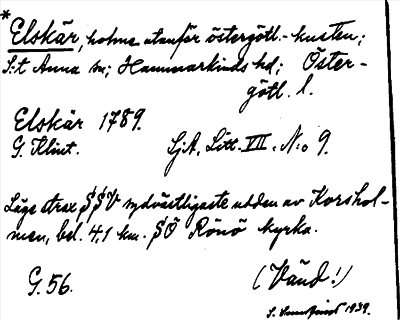 *
Elskär, holme utanför östergötl.-kusten;
S:t Anna sn; Hammarkinds hd; Öster-
götl. l.
Elskär 1789.
G. Klint. SjA. Litt. VII. N:o 9.
Läge strax SSV sydvästligaste udden av Korshol-
men, bel. 4,1 km. SÖ Rönö kyrka.
G. 56. (Vänd!)
S. 1939.